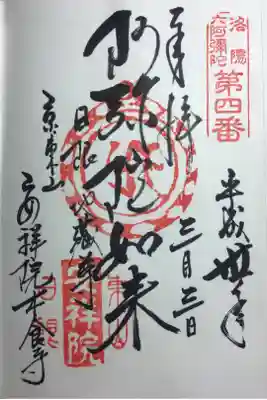 洛陽
六阿彌陀
第四番
平成卅年
三月三日
奉拝
阿弥陀如来
日限地蔵尊
京東山
安祥院木食寺